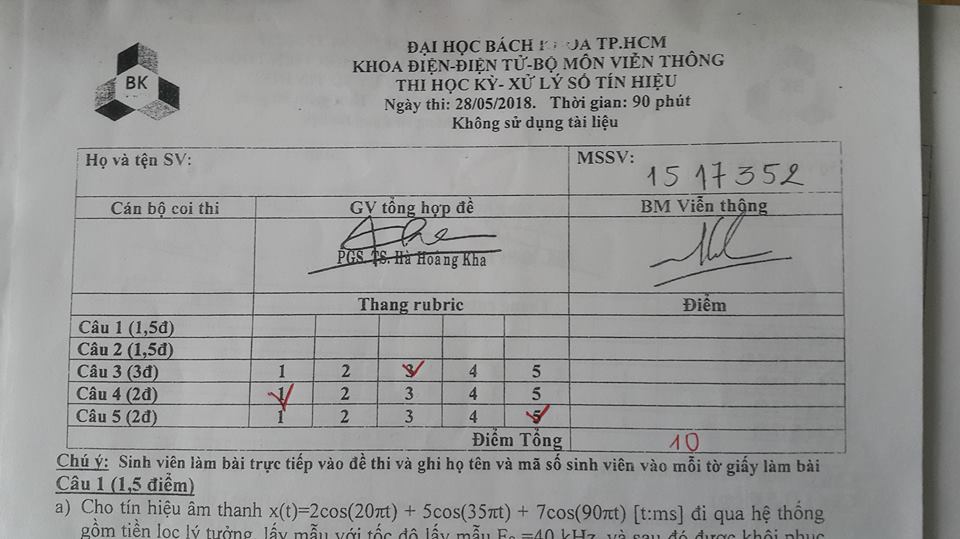 BK
ĐẠI HỌC BÁCH KHOA TP.HCM
KHOA ĐIỆN-ĐIỆN TỬ-BỘ MÔN VIỄN THÔNG
THI HỌC KỲ- XỬ LÝ SỐ TÍN HIỆU
Ngày thi: 28/05/2018. Thời gian: 90 phút
Không sử dụng tài liệu
Họ và tên SV: MSSV: 1517352
Cán bộ coi thi GV tổng hợp đề BM Viễn thông
PGS. TS. Hà Hoàng Kha
Thang rubric Điểm
Câu 1 (1,5đ)
Câu 2 (1,5đ)
Câu 3 (3đ) 1 2 3 4 5
Câu 4 (2đ) 1 2 3 4 5
Câu 5 (2đ) 1 2 3 4 5
Điểm Tổng 10
Chú ý: Sinh viên làm bài trực tiếp vào đề thi và ghi họ tên và mã số sinh viên vào mỗi tờ giấy làm bài
Câu 1 (1,5 điểm)
a) Cho tín hiệu âm thanh x(t)=2cos(20πt) + 5cos(35πt) + 7cos(90πt) [t:ms] đi qua hệ thống
gồm tiền lọc lý tưởng, lấy mẫu với tốc độ lấy mẫu =40 kHz, và sau đó được khôi phục